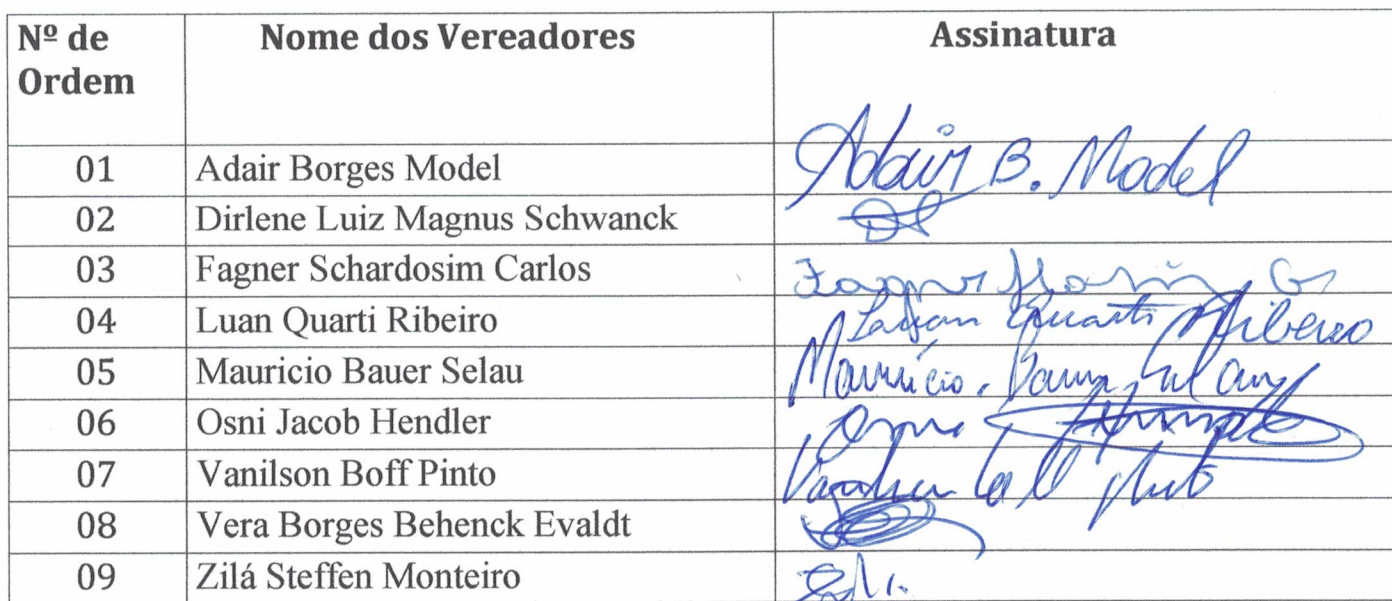 Nº de Ordem Nome dos Vereadores Assinatura
01 Adair Borges Model Adair B. Model
02 Dirlene Luiz Magnus Schwanck
03 Fagner Schardosim Carlos Fagner
04 Luan Quarti Ribeiro Luan Quarti Ribeiro
05 Mauricio Bauer Selau Maurício
06 Osni Jacob Hendler Osni
07 Vanilson Boff Pinto
08 Vera Borges Behenck Evaldt
09 Zilá Steffen Monteiro